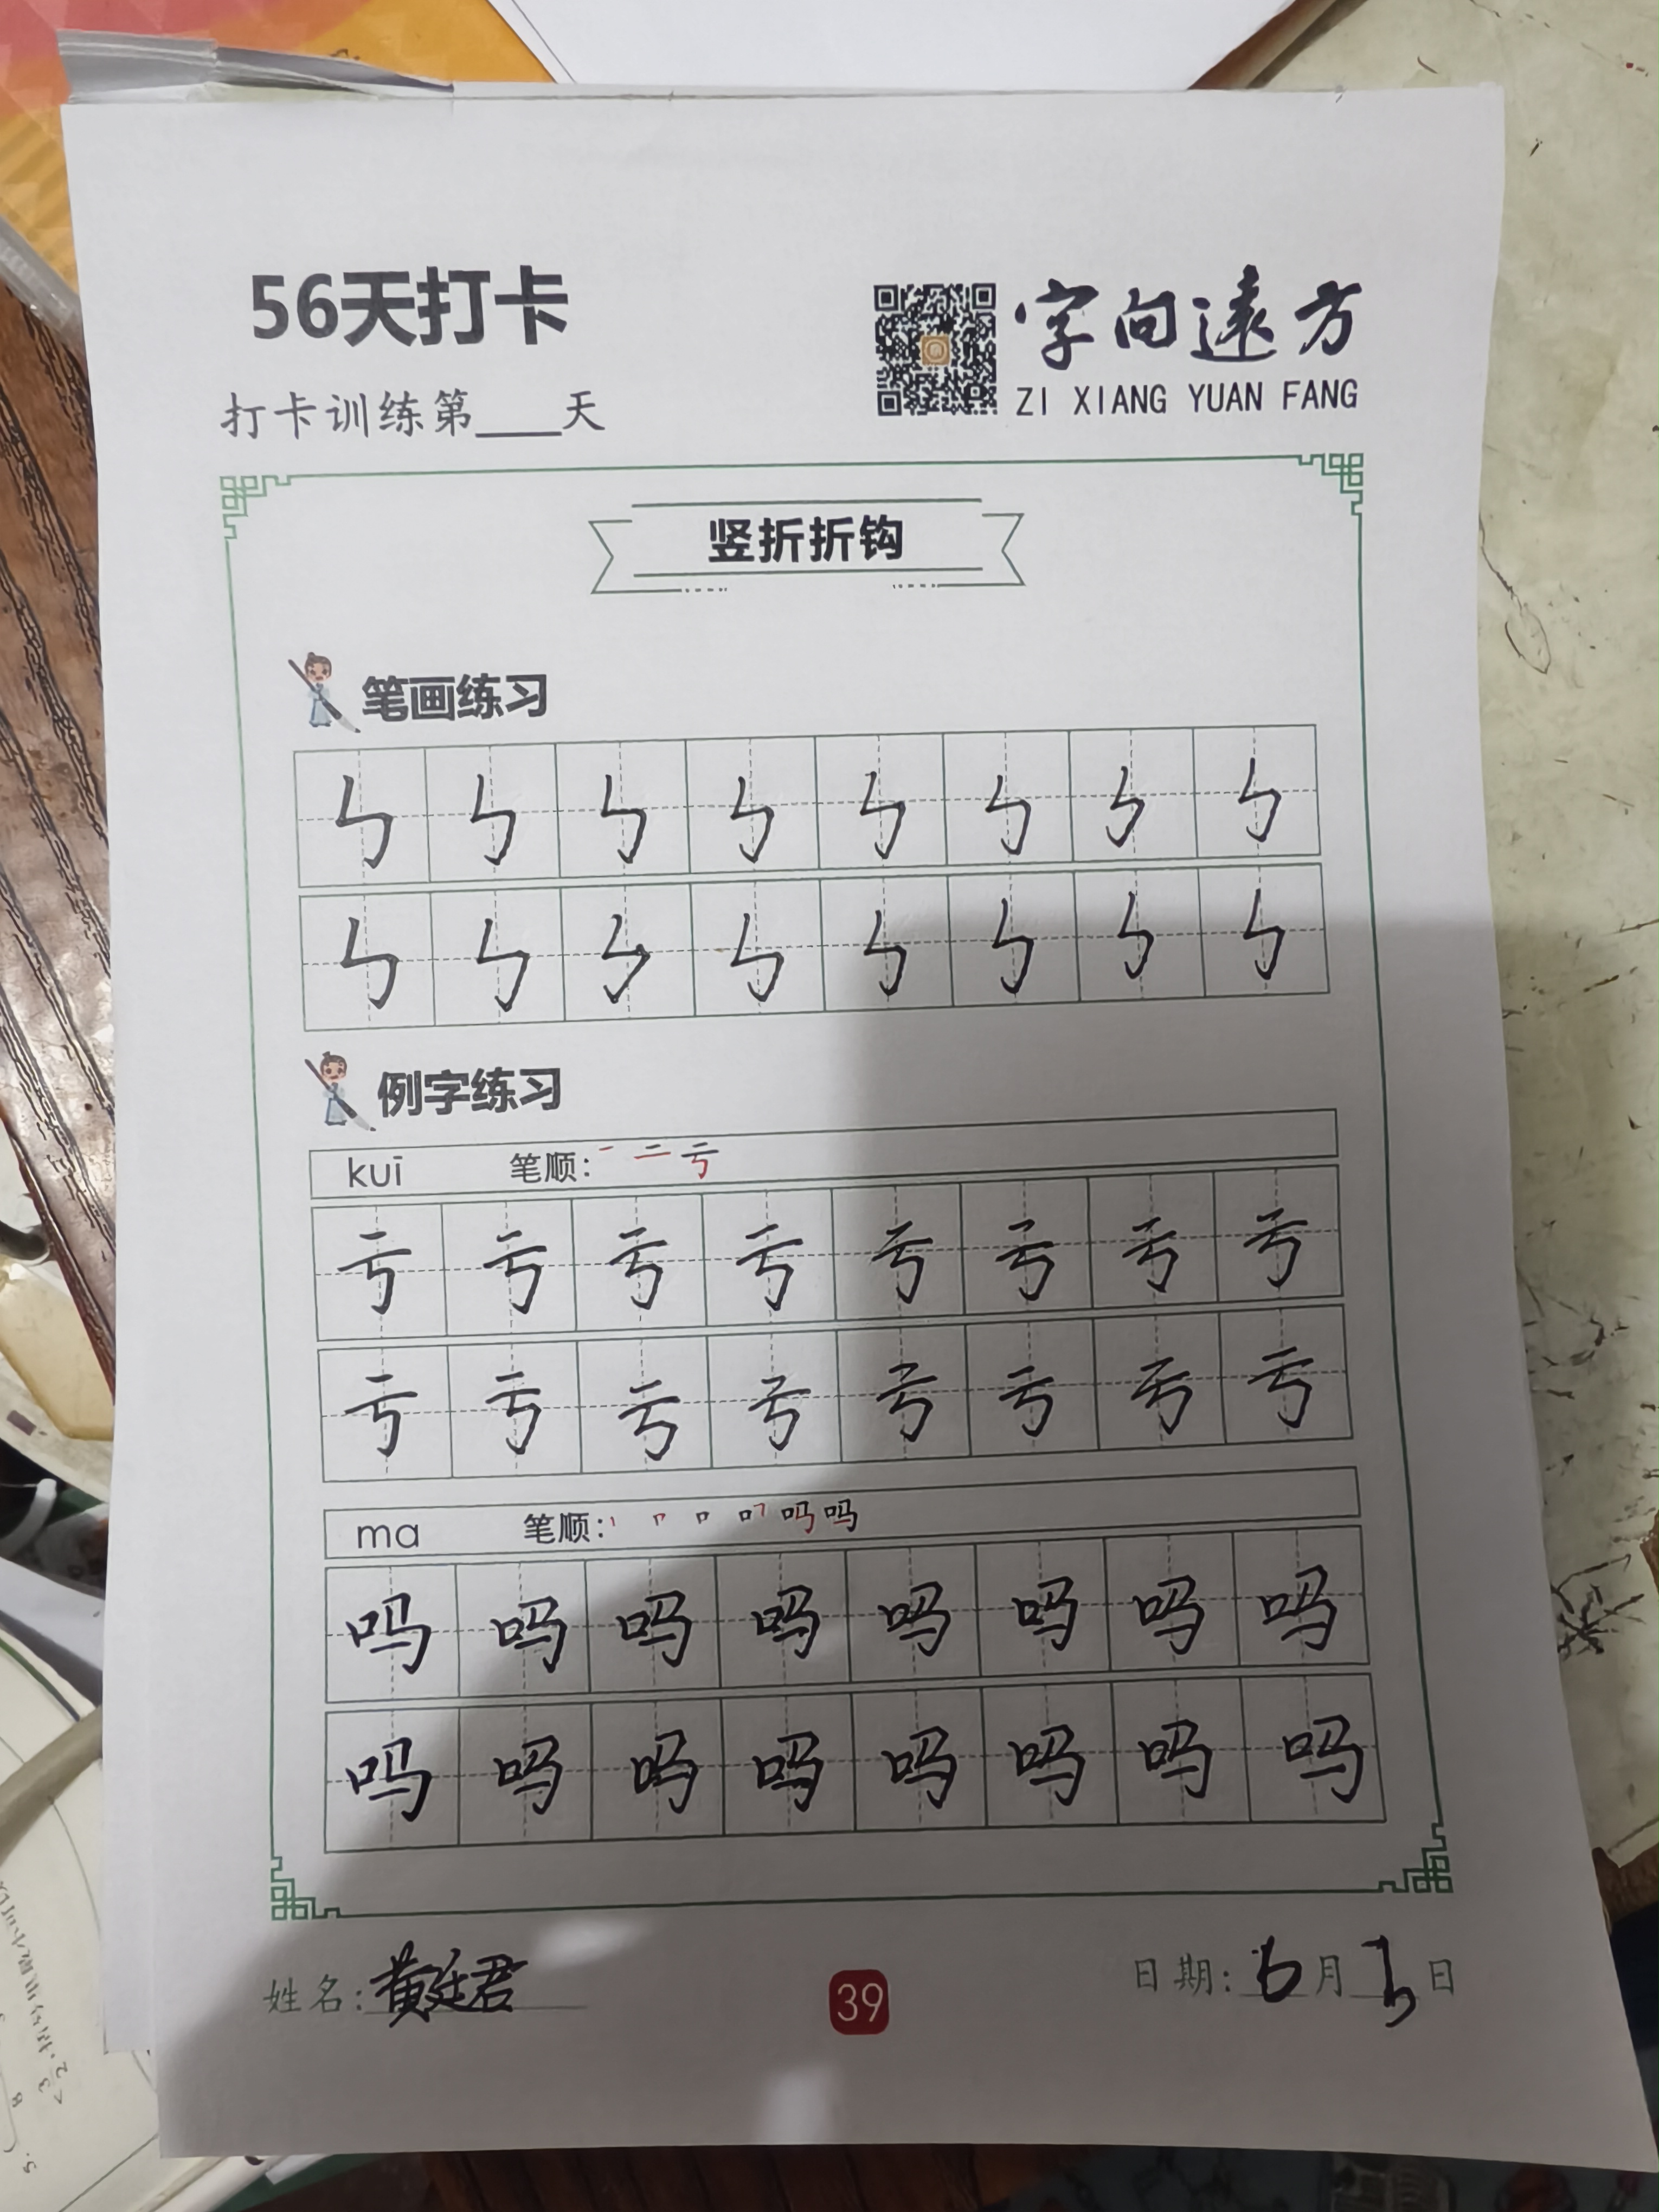 56天打卡
字向遠方
ZI XIANG YUAN FANG
打卡训练第____天
竖折折钩
笔画练习
ㄣ ㄣ ㄣ ㄣ ㄣ ㄣ ㄣ ㄣ
ㄣ ㄣ ㄣ ㄣ ㄣ ㄣ ㄣ ㄣ
例字练习
kuī 笔顺: 一 二 亏
亏 亏 亏 亏 亏 亏 亏 亏
亏 亏 亏 亏 亏 亏 亏 亏
ma 笔顺: 丨 冂 口 叮 吗 吗
吗 吗 吗 吗 吗 吗 吗 吗
吗 吗 吗 吗 吗 吗 吗 吗
姓名: 黄廷君
39
日期: 6月5日